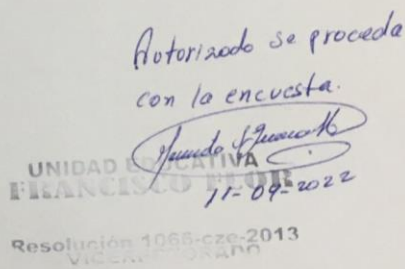 Autorizado se proceda
con la encuesta.
UNIDAD EDUCATIVA
FRANCISCO FLOR
11-09-2022
Resolución 1066-cze-2013
VICERRECTORADO